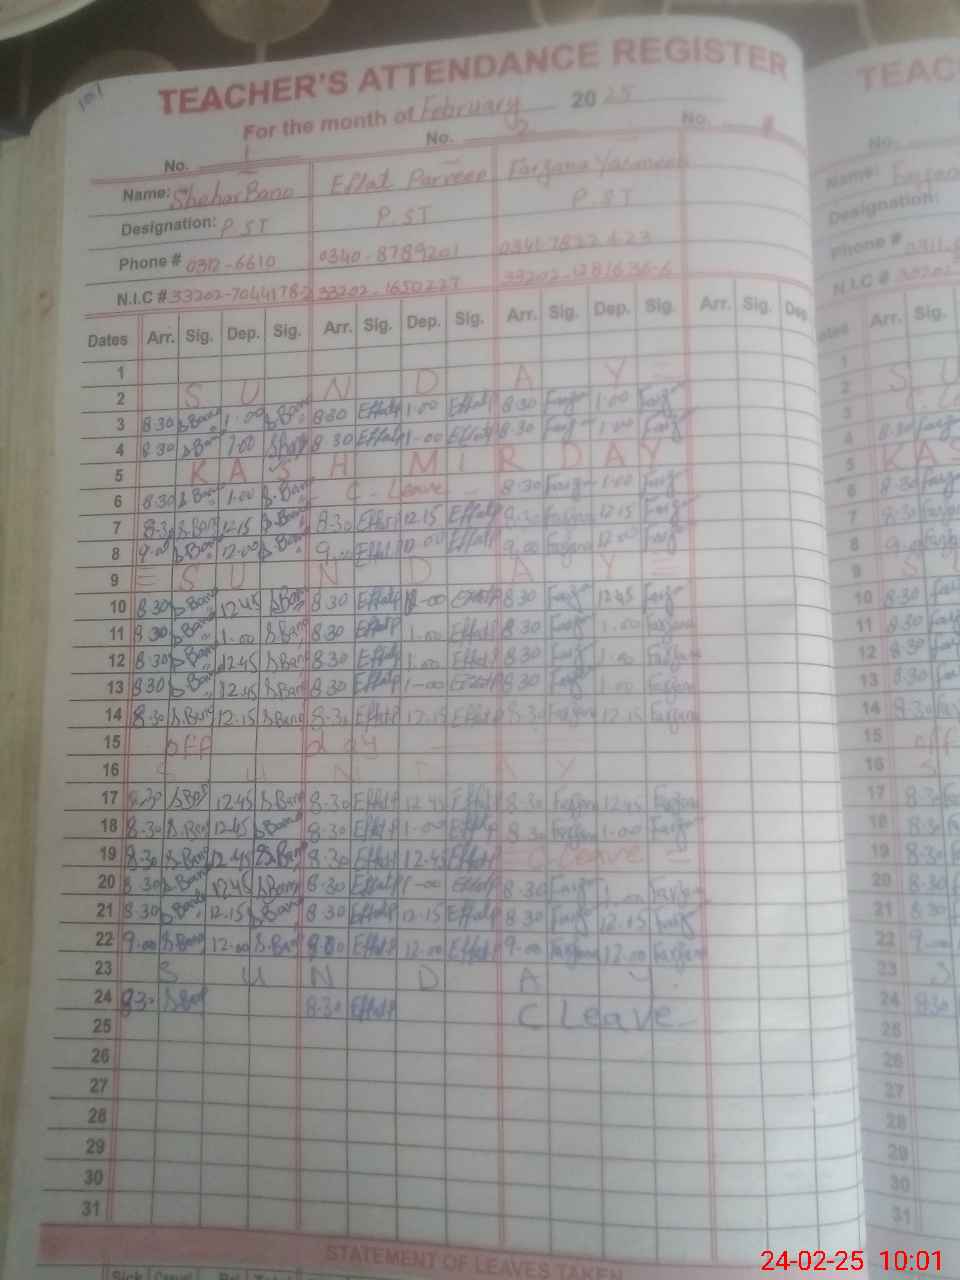 101
TEACHER'S ATTENDANCE REGISTER
For the month of February 2025
No. 1 No. 2 No.
Name: Shehar Bano Effat Parveen Farzana Yasmeen
Designation: P.ST P.ST P.ST
Phone # 0312-6610 0340-8789201
N.I.C # 33202-7044178-2 33202-1281636-6
Dates Arr. Sig. Dep. Sig. Arr. Sig. Dep. Sig. Arr. Sig. Dep. Sig. Arr. Sig. Dep.
1
2 S U N D A Y
3 8.30 S.Bano 1.00 S.Bano 8.30 EffatP 1.00 EffatP 8.30 Farz 1.00 Farz
4 8.30 S.Bano 1.00 8.30 EffatP 1-00 EffatP 8.30 Farz 1.00 Farz
5 K A S H M I R D A Y
6 8.30 S.Bano 1.00 S.Bano C-Leave 8.30 Farz 1.00 Farz
7 8.30 S.Bano 12.15 S.Bano 8.30 EffatP 12.15 EffatP 8.30 Farzana 12.15 Farz
8 9.00 S.Bano 12.00 S.Bano 9.00 EffatP 12.00 EffatP 9.00 Farzana 12.00 Farz
9 = S U N D A Y =
10 8.30 S.Bano 12.45 S.Bano 8.30 EffatP EffatP 8.30 Farz 12.45 Farz
11 8.30 S.Bano 1.00 S.Bano 8.30 EffatP 1.00 EffatP 8.30 Farz 1.00 Farzana
12 8.30 S.Bano 12.45 S.Bano 8.30 EffatP 1.00 EffatP 8.30 Farz 1.00 Farzana
13 8.30 S.Bano 12.45 S.Bano 8.30 EffatP 1-00 EffatP 8.30 Farz 1.00 Farzana
14 8.30 S.Bano 12.15 S.Bano 8.30 EffatP 12.15 EffatP 8.30 Farzana 12.15 Farzana
15 off day
16 S U N D A Y
17 8.30 S.Bano 12.45 S.Bano 8.30 EffatP 12.45 EffatP 8.30 Farzana 12.45 Farzana
18 8.30 S.Bano 12.45 S.Bano 8.30 EffatP 1.00 EffatP 8.30 Farzana 1.00 Farzana
19 8.30 S.Bano 12.45 S.Bano 8.30 EffatP 12.45 EffatP = C-Leave =
20 8.30 S.Bano 12.45 S.Bano 8.30 EffatP 1-00 EffatP 8.30 Farz 1.00 Farzana
21 8.30 S.Bano 12.15 S.Bano 8.30 EffatP 12.15 EffatP 8.30 Farz 12.15 Farz
22 9.00 S.Bano 12.00 S.Bano EffatP 12.00 EffatP 9.00 Farzana 12.00 Farzana
23 S U N D A Y
24 8.30 S.Bano 8.30 EffatP C Leave
25
26
27
28
29
30
31
STATEMENT OF LEAVES TAKEN
Sick
TEAC
No.
Name: Farzana
Designation:
Phone #
N.I.C #
Arr. Sig.
1
2 S U
3
4 8.30
5 K A S
6 8.30
7 8.30
8 9.00
9 S U
10 8.30
11 8.30
12 8.30
13 8.30
14 8.30
15 off
16 S
17 8.30
18 8.30
19 8.30
20 8.30
21 8.30
22 9.00
23 S
24 8.30
25
26
27
28
29
30
31
24-02-25 10:01